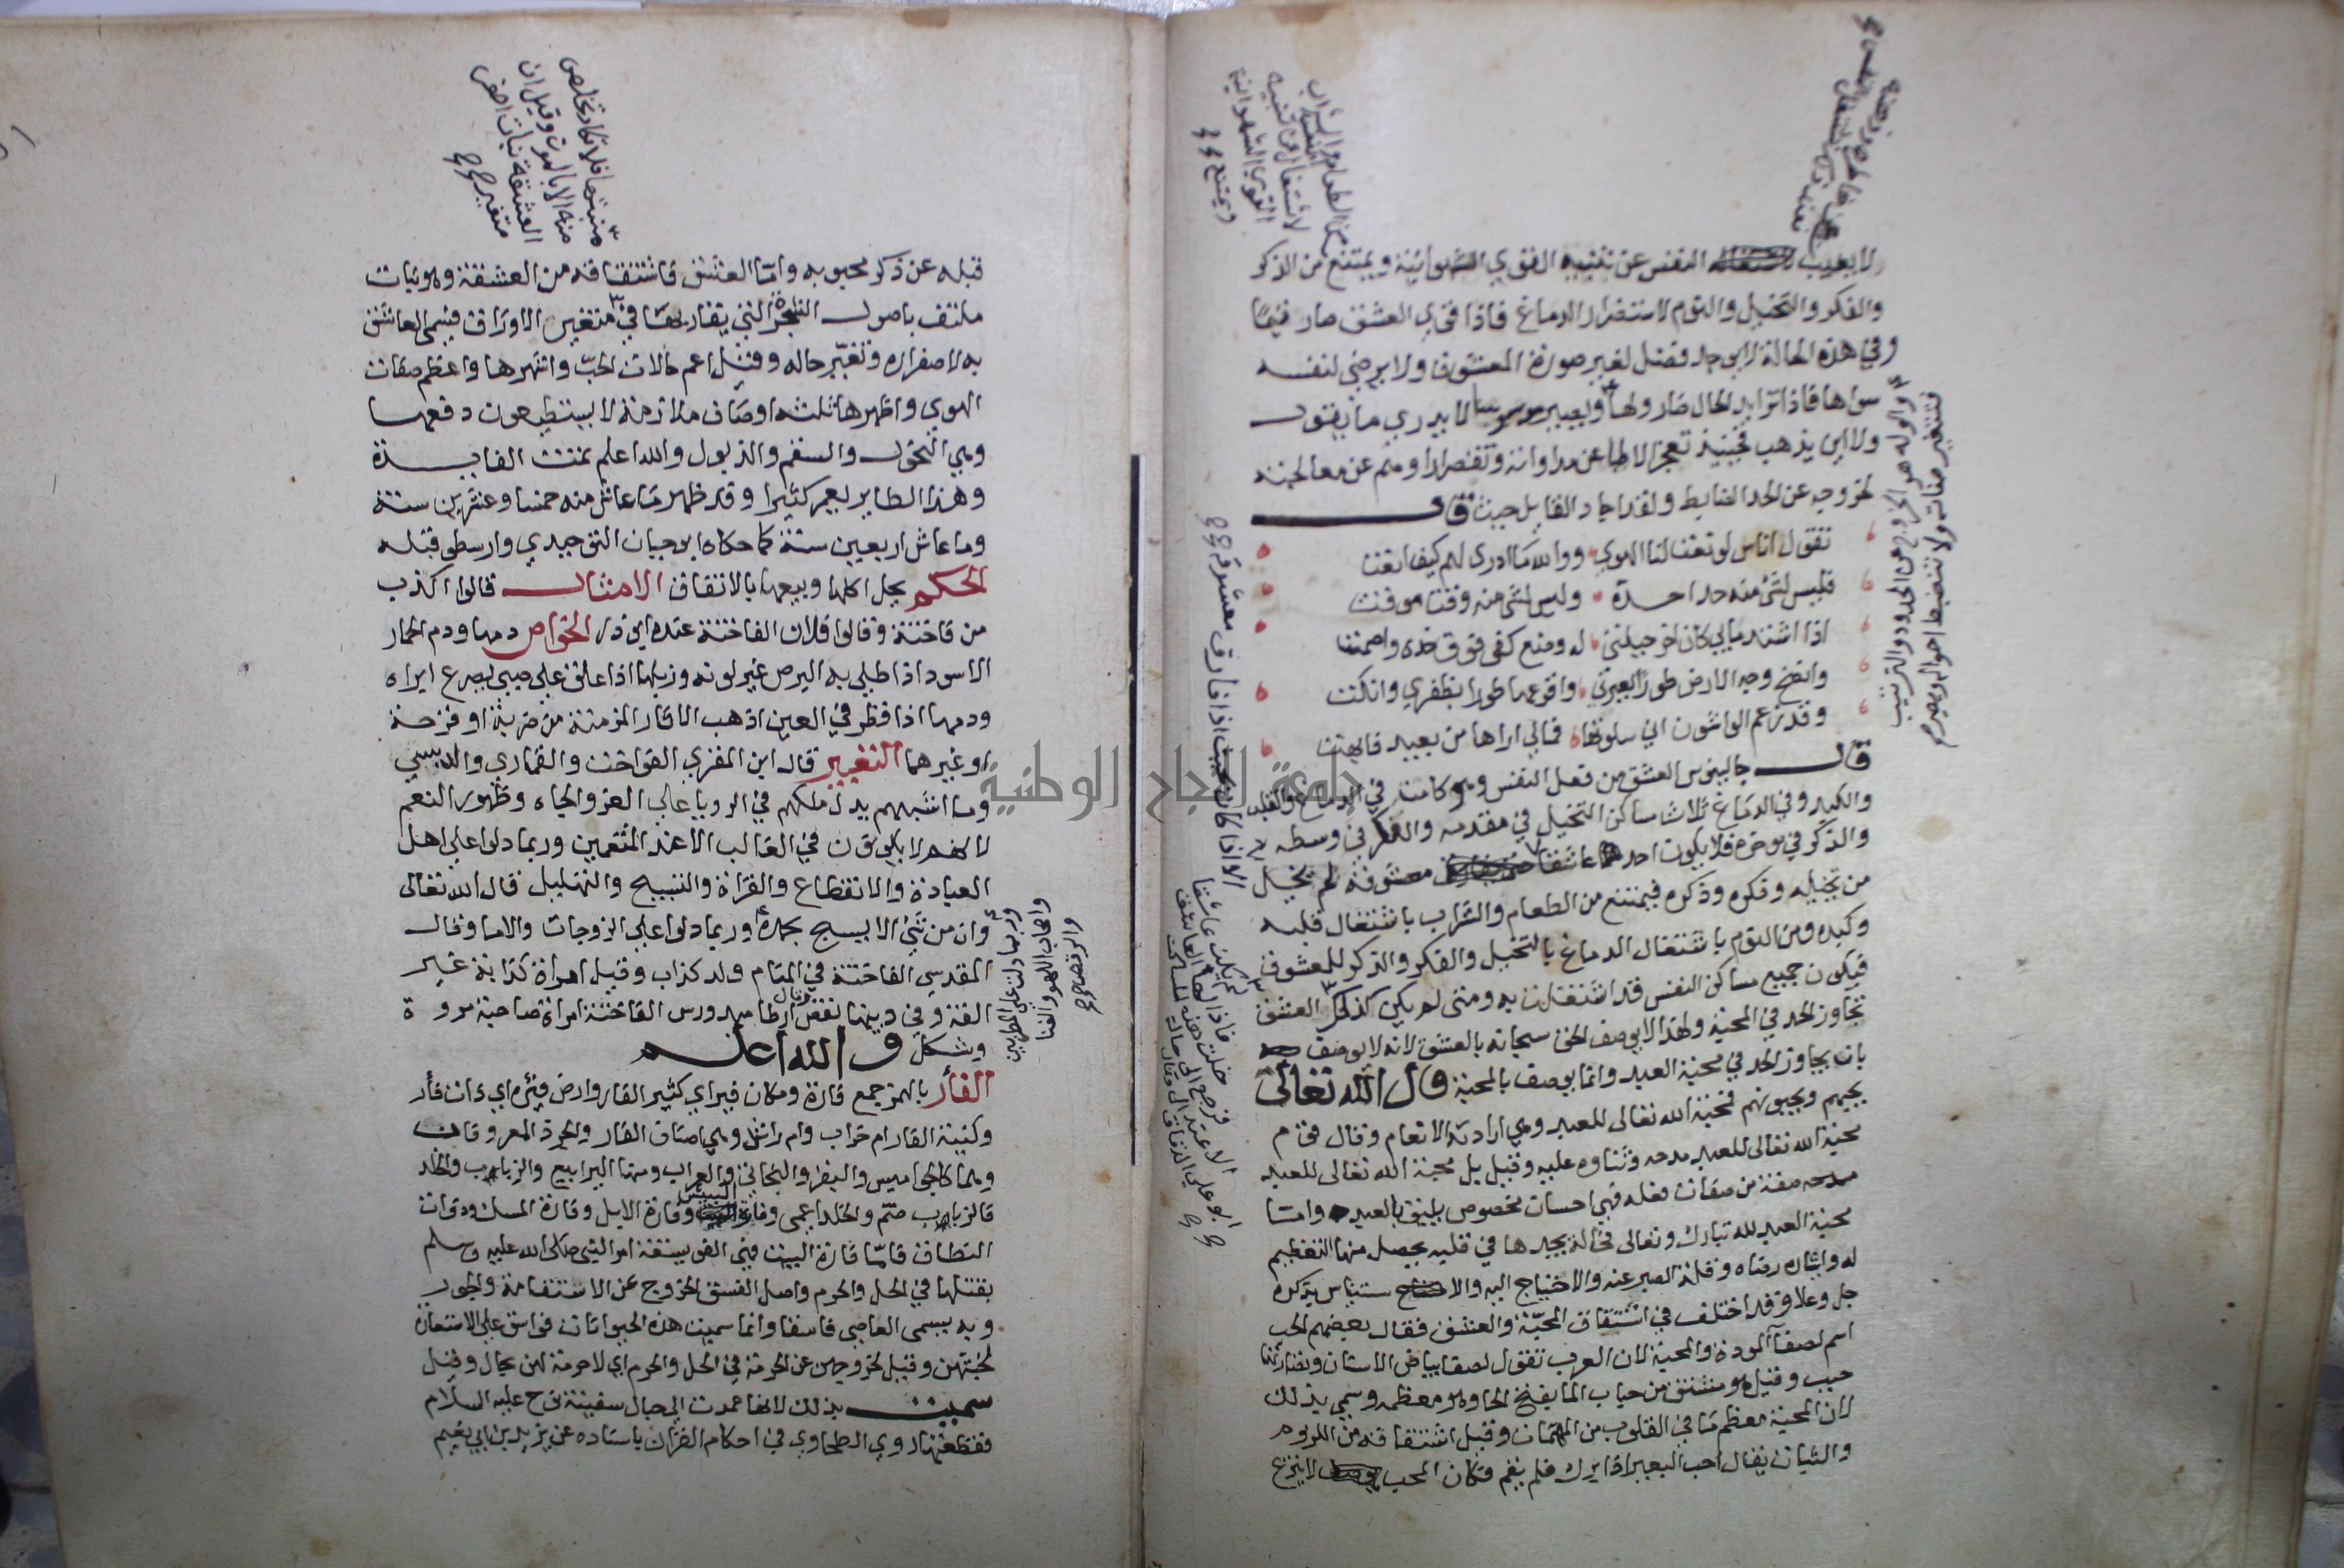 لا يعرب النفس عن تنبيه القوي الشهوانية ويمتنع من الذكر
والفكر والتخيل والنوم لاستضرار الدماغ فاذا قوي العشق صار
وفي هذه الحالة لا يوجد فضل لغير صورة المعشوق ولا يرضي لنفسه
سواها فاذا تزايد الحال صار ولها ويصير لا يدري ما يقول
ولا اين يذهب فحينيذ تعجز الاطبا عن مداواته وتقصر اراوهم عن معالجته
لخروجه عن الحد الضابط ولقد اجاد القايل حيث قال
تقول اناس لو نعت لنا الهوي ووالله ما ادري لهم كيف انعت
فليس لشئ منه حد احده وليس لشئ منه وقت موقت
اذا اشتد ما بي كان اخر حيلتي له وضع كفي فوق خدي واصمت
وانضح وجه الارض طورا بعبرتي واقرعها طورا بظفري وانكت
وقد زعم الواشون اني سلوتها فمالي اراها من بعيد فابهت
قال جالينوس العشق من فعل النفس وهو كامن في الدماغ والقلب
والكبد وفي الدماغ ثلاث مساكن التخيل في مقدمه والفكر في وسطه
والذكر في موخره فلا يكون احد عاشقا معشوقه لم يخل
من تخيله وفكره وذكره فيمتنع من الطعام والشراب باشتغال قلبه
وكبده ومن النوم باشتغال الدماغ بالتخيل والفكر والذكر للمعشوق
فيكون جميع مساكن النفس قد اشتغلت به ومتى لم يكن كذلك العشق
تجاوز الحد في المحبة ولهذا لا يوصف الحق سبحانه بالعشق لانه لا يوصف
بان يجاوز الحد في محبة العبد وانما يوصف بالمحبة قال الله تعالى
يحبهم ويحبونهم فمحبة الله تعالى للعبد وهي ارادته الانعام وقال قوم
محبة الله تعالى للعبد مدحه وثناوه عليه وقيل بل محبة الله تعالى للعبد
صفة من صفات فعله فهي احسان مخصوص يليق بالعبد واما
محبة العبد لله تبارك وتعالى فحالة يجدها في قلبه يحصل منها التعظيم
له وايثاره رضاه وقلة الصبر عنه والاحتياج اليه والا ستيناس بذكره
جل وعلا وقد اختلف في اشتقاق المحبة والعشق فقال بعضهم الحب
اسم لصفا المودة والمحبة لان العرب تقول لصفا بياض الاسنان ونضارتها
حبب وقيل هو مشتق من حباب الما بفتح الحا وهو معظمه وسمي بذلك
لان المحبة معظم ما في القلوب من المهمات وقيل اشتقاقه من اللزوم
والثبات يقال احب البعير اذا برك فلم يقم فكان المحب لا ينزع
والوله هو الخروج عن الحدود والترتيب
فتتغير صفاته ولا تنضبط احواله ويصير
من الطعام والشراب
لاشتغال عن تنبيه
القوي الشهوانية
ويمتنع
الا اذا كان بحيث اذا فارق معشوقه
لم يكن عاشقا
قبله عن ذكر محبوبه واما العشق فاشتقاقه من العشقة وهو نبات
ملتف باصول الشجرة التي يقاربها في متغير الاوراق فيسمى العاشق
به لاصفراره وتغير حاله وقيل اعم حالات الحب واشهرها واعظم صفات
الهوي واظهرها ثلثه اوصاف ملازمة لا يستطيعون دفعها
وهي النحول والسقم والذبول والله اعلم تمت الفايدة
وهذا الطاير يعمر كثيرا وقد ظهر ما عاش منه خمسا وعشرين سنة
وما عاش اربعين سنة كما حكاه ابو حيان التوحيدي وارسطو قبله
الحكم يحل اكلها وبيعها بالاتفاق الامثال قالوا اكذب
من فاختة وقالوا فلان الفاختة عنده ابو ذر الخواص دمها ودم الحمار
الاسود اذا طلي به البرص غير لونه وزبلها اذا علق على صبي يصرع ابراه
ودمها اذا قطر في العين اذهب الاثار المزمنة من ضربة او قرحة
او غيرهما التعبير قال ابن المقري الفواخت والقماري والدبسي
وما اشبههم يدل ملكهم في الرويا على العز والجاه وظهور النعم
لانهم لا يكونون في الغالب الا عند المتنعمين وربما دلوا على اهل
العبادة والانقطاع والقراة والتسبيح والتهليل قال الله تعالى
وان من شئ الا يسبح بحمده وربما دلوا على الزوجات والاما وقال
المقدسي الفاختة في المنام ولد كذاب وقيل امراة كذابة غير
الفة وفي دينها نقص وقال ارطاميدورس الفاختة امراة صاحبة مروة
وشكل والله اعلم
الفأر بالهمز جمع فارة ومكان فيراي كثير الفار وارض فيرة اي ذات فأر
وكنية الفار ام خراب وام راشد وهي اصناف الفار والجرذ المعروفان
وهما كالجواميس والبقر والبخاتي والعراب ومنها اليرابيع والزباب والخلد
فالزباب صم والخلد اعمى وفارة البيش وفارة الابل وفارة المسك وذوات
النطاق فاما فارة البيت فهي الفويسقة امر النبي صلى الله عليه وسلم
بقتلها في الحل والحرم واصل الفسق الخروج عن الاستقامة والجور
وبه يسمى العاصي فاسقا وانما سميت هذه الحيوانات فواسق على الاستعارة
لخبثهن وقيل لخروجهن عن الحرمة في الحل والحرم اي لا حرمة لهن بحال وقيل
سميت بذلك لانها عمدت الى حبال سفينة نوح عليه السلام
فقطعتها روي الطحاوي في احكام القران باسناده عن يزيد بن ابي نعيم
فلا يكاد يتخلص
منه الا بالموت وقيل ان
العشقة نبات اصفر
متغير
وربما دلت على المطربين
واصحاب اللهو والغنا
والرقص
جامعة النجاح الوطنية